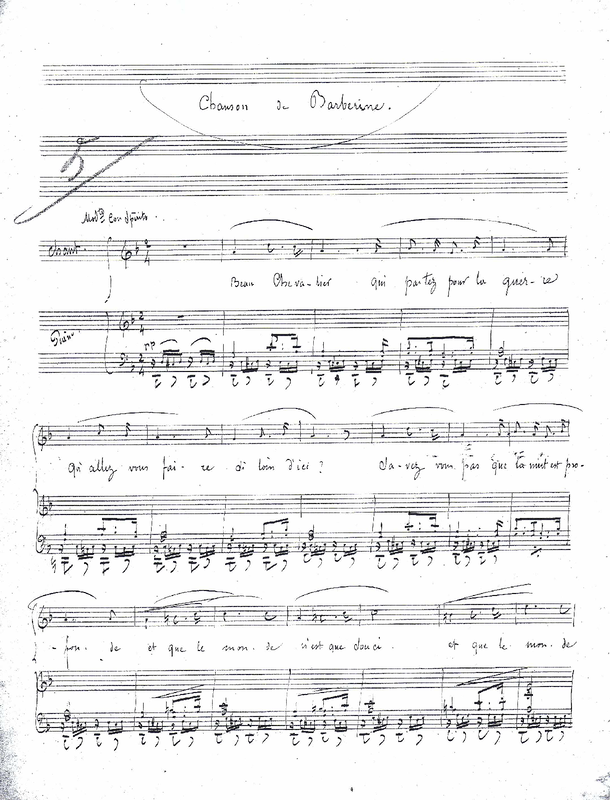 Chanson de Barberine.
Modto Con Spirito.
Chant.
Beau Cheva-lier qui partez pour la guer-re
Piano
pp
Qu'allez vous fai-re si loin d'ici? Sa-vez vous pas que la nuit est pro-
-fon-de et que le mon-de n'est que souci. et que le mon-de